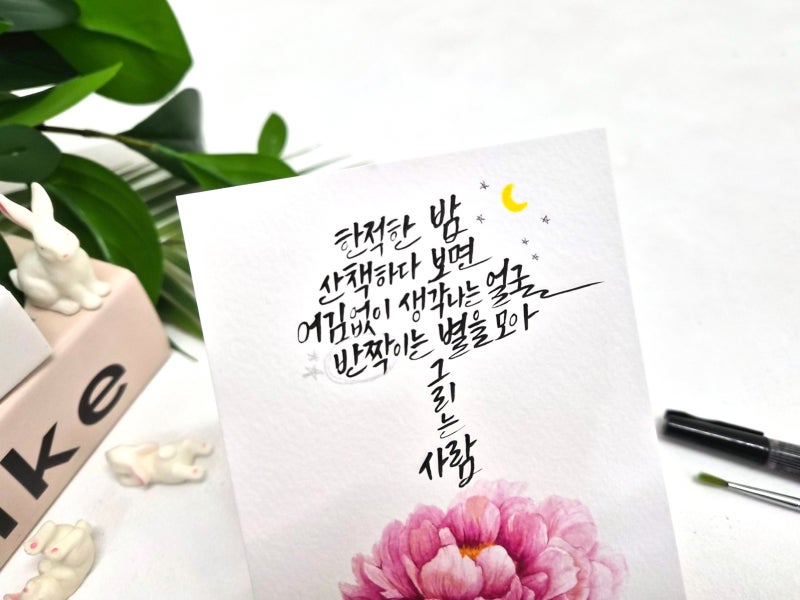 한적한 밤
산책하다 보면
어김없이 생각나는 얼굴
반짝이는 별을 모아
그
리
는
사람
ike